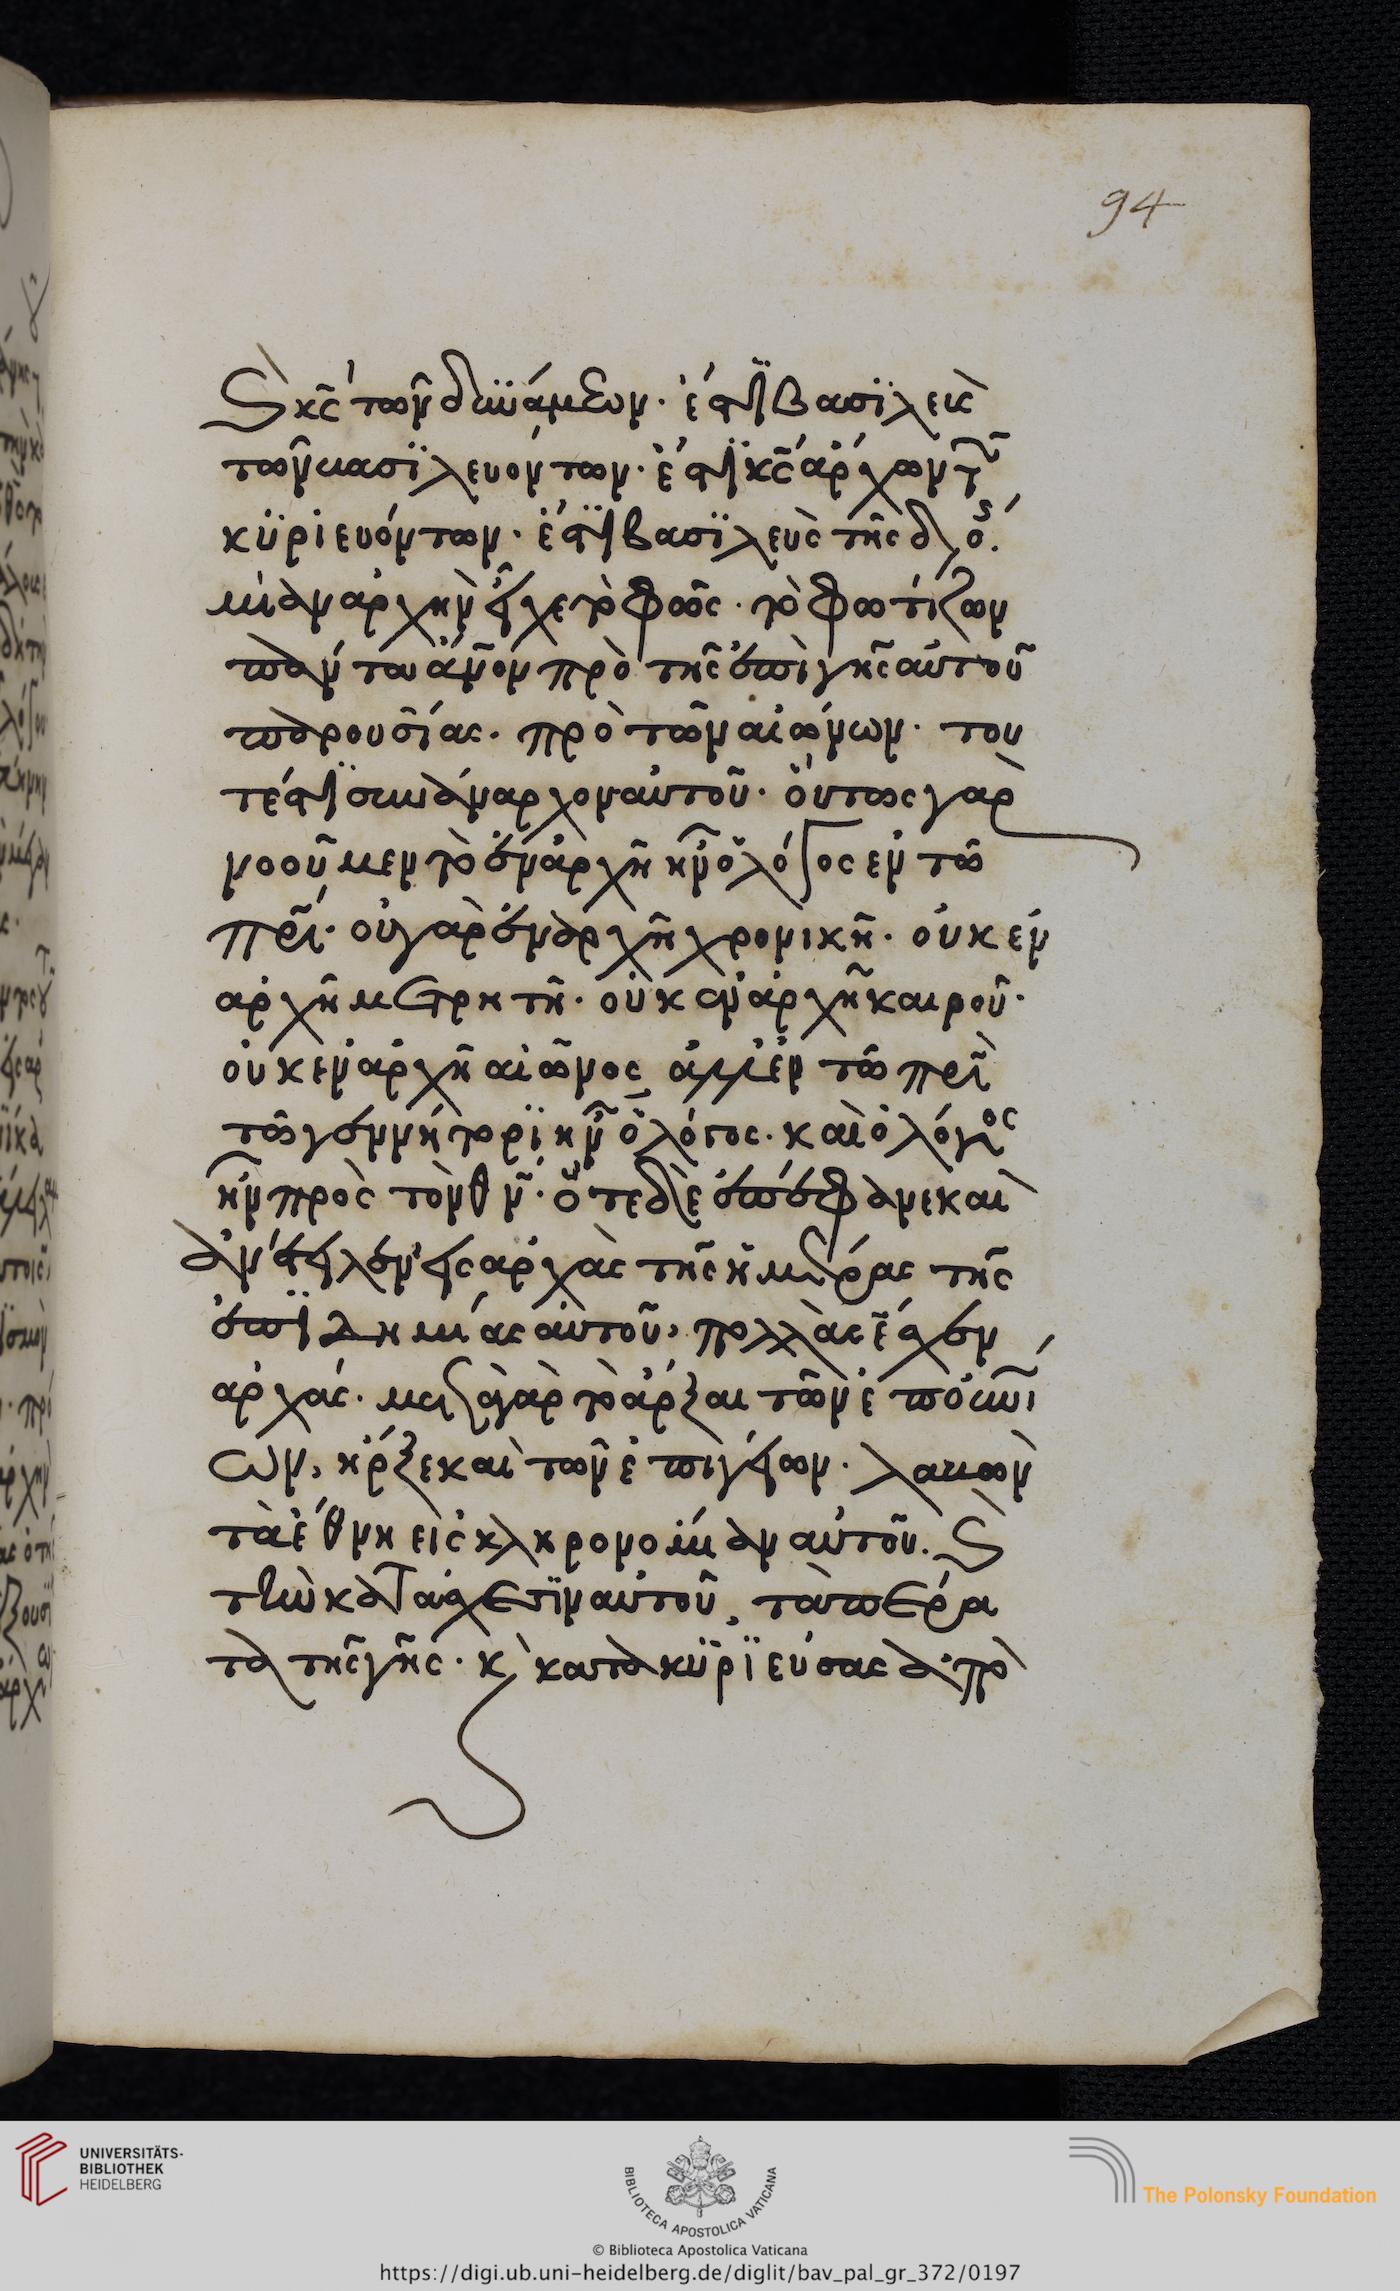 94
καὶ κς τῶν δυνάμεων. ἐστὶ βασιλεὺς
τῶν βασιλευόντων. ἐστὶ κς ἀρχῶν τῶν
κυριευόντων. ἐστὶ βασιλεὺς τῆς δόξης.
μίαν ἀρχὴν εἶχε τὸ φῶς. τὸ φωτίζων
πάντα ἄνον πρὸ τῆς ἐπὶ γῆς αὐτοῦ
παρουσίας. πρὸ τῶν αἰώνων. του
τέστι συνάναρχον αὐτοῦ. οὕτως γὰρ
νοοῦμεν τὸ ἐν ἀρχῆ ἦν ὁ λόγος εν τῶ
πρι. οὐ γὰρ ἐν ἀρχῆ χρονικῆ. οὐκ εν
αρχῆ μετρητῆ. οὐκ ἐν ἀρχῆ καιροῦ.
οὐκ εν ἀρχῆ αἰῶνος ἀλλ' ἐν τῶ πρι
τῶ γεννήτορι ἦν ὁ λόγος. καὶ ὁ λόγος
ἦν πρὸς τὸν θν. ὅτε δὲ ἐπέφανε καὶ
ἀνέτειλεν εἰς αρχὰς τῆς ἡμέρας τῆς
ἐπιδημίας αὐτοῦ, πολλὰς ἔσχεν
αρχάς. μετὰ γὰρ τὸ ἄρξαι τῶν ἐπουρανί
ων, ἦρξε καὶ τῶν ἐπιγείων. λαβὼν
τὰ ἔθνη εἰς κληρονομίαν αὐτοῦ. καὶ
τὴν κατάσχεσιν αὐτοῦ, τὰ πέρα
τα τῆς γῆς. κ κατακυριεύσας ἀπὸ
UNIVERSITÄTS-
BIBLIOTHEK
HEIDELBERG
BIBLIOTECA APOSTOLICA VATICANA
The Polonsky Foundation
© Biblioteca Apostolica Vaticana
https://digi.ub.uni-heidelberg.de/diglit/bav_pal_gr_372/0197